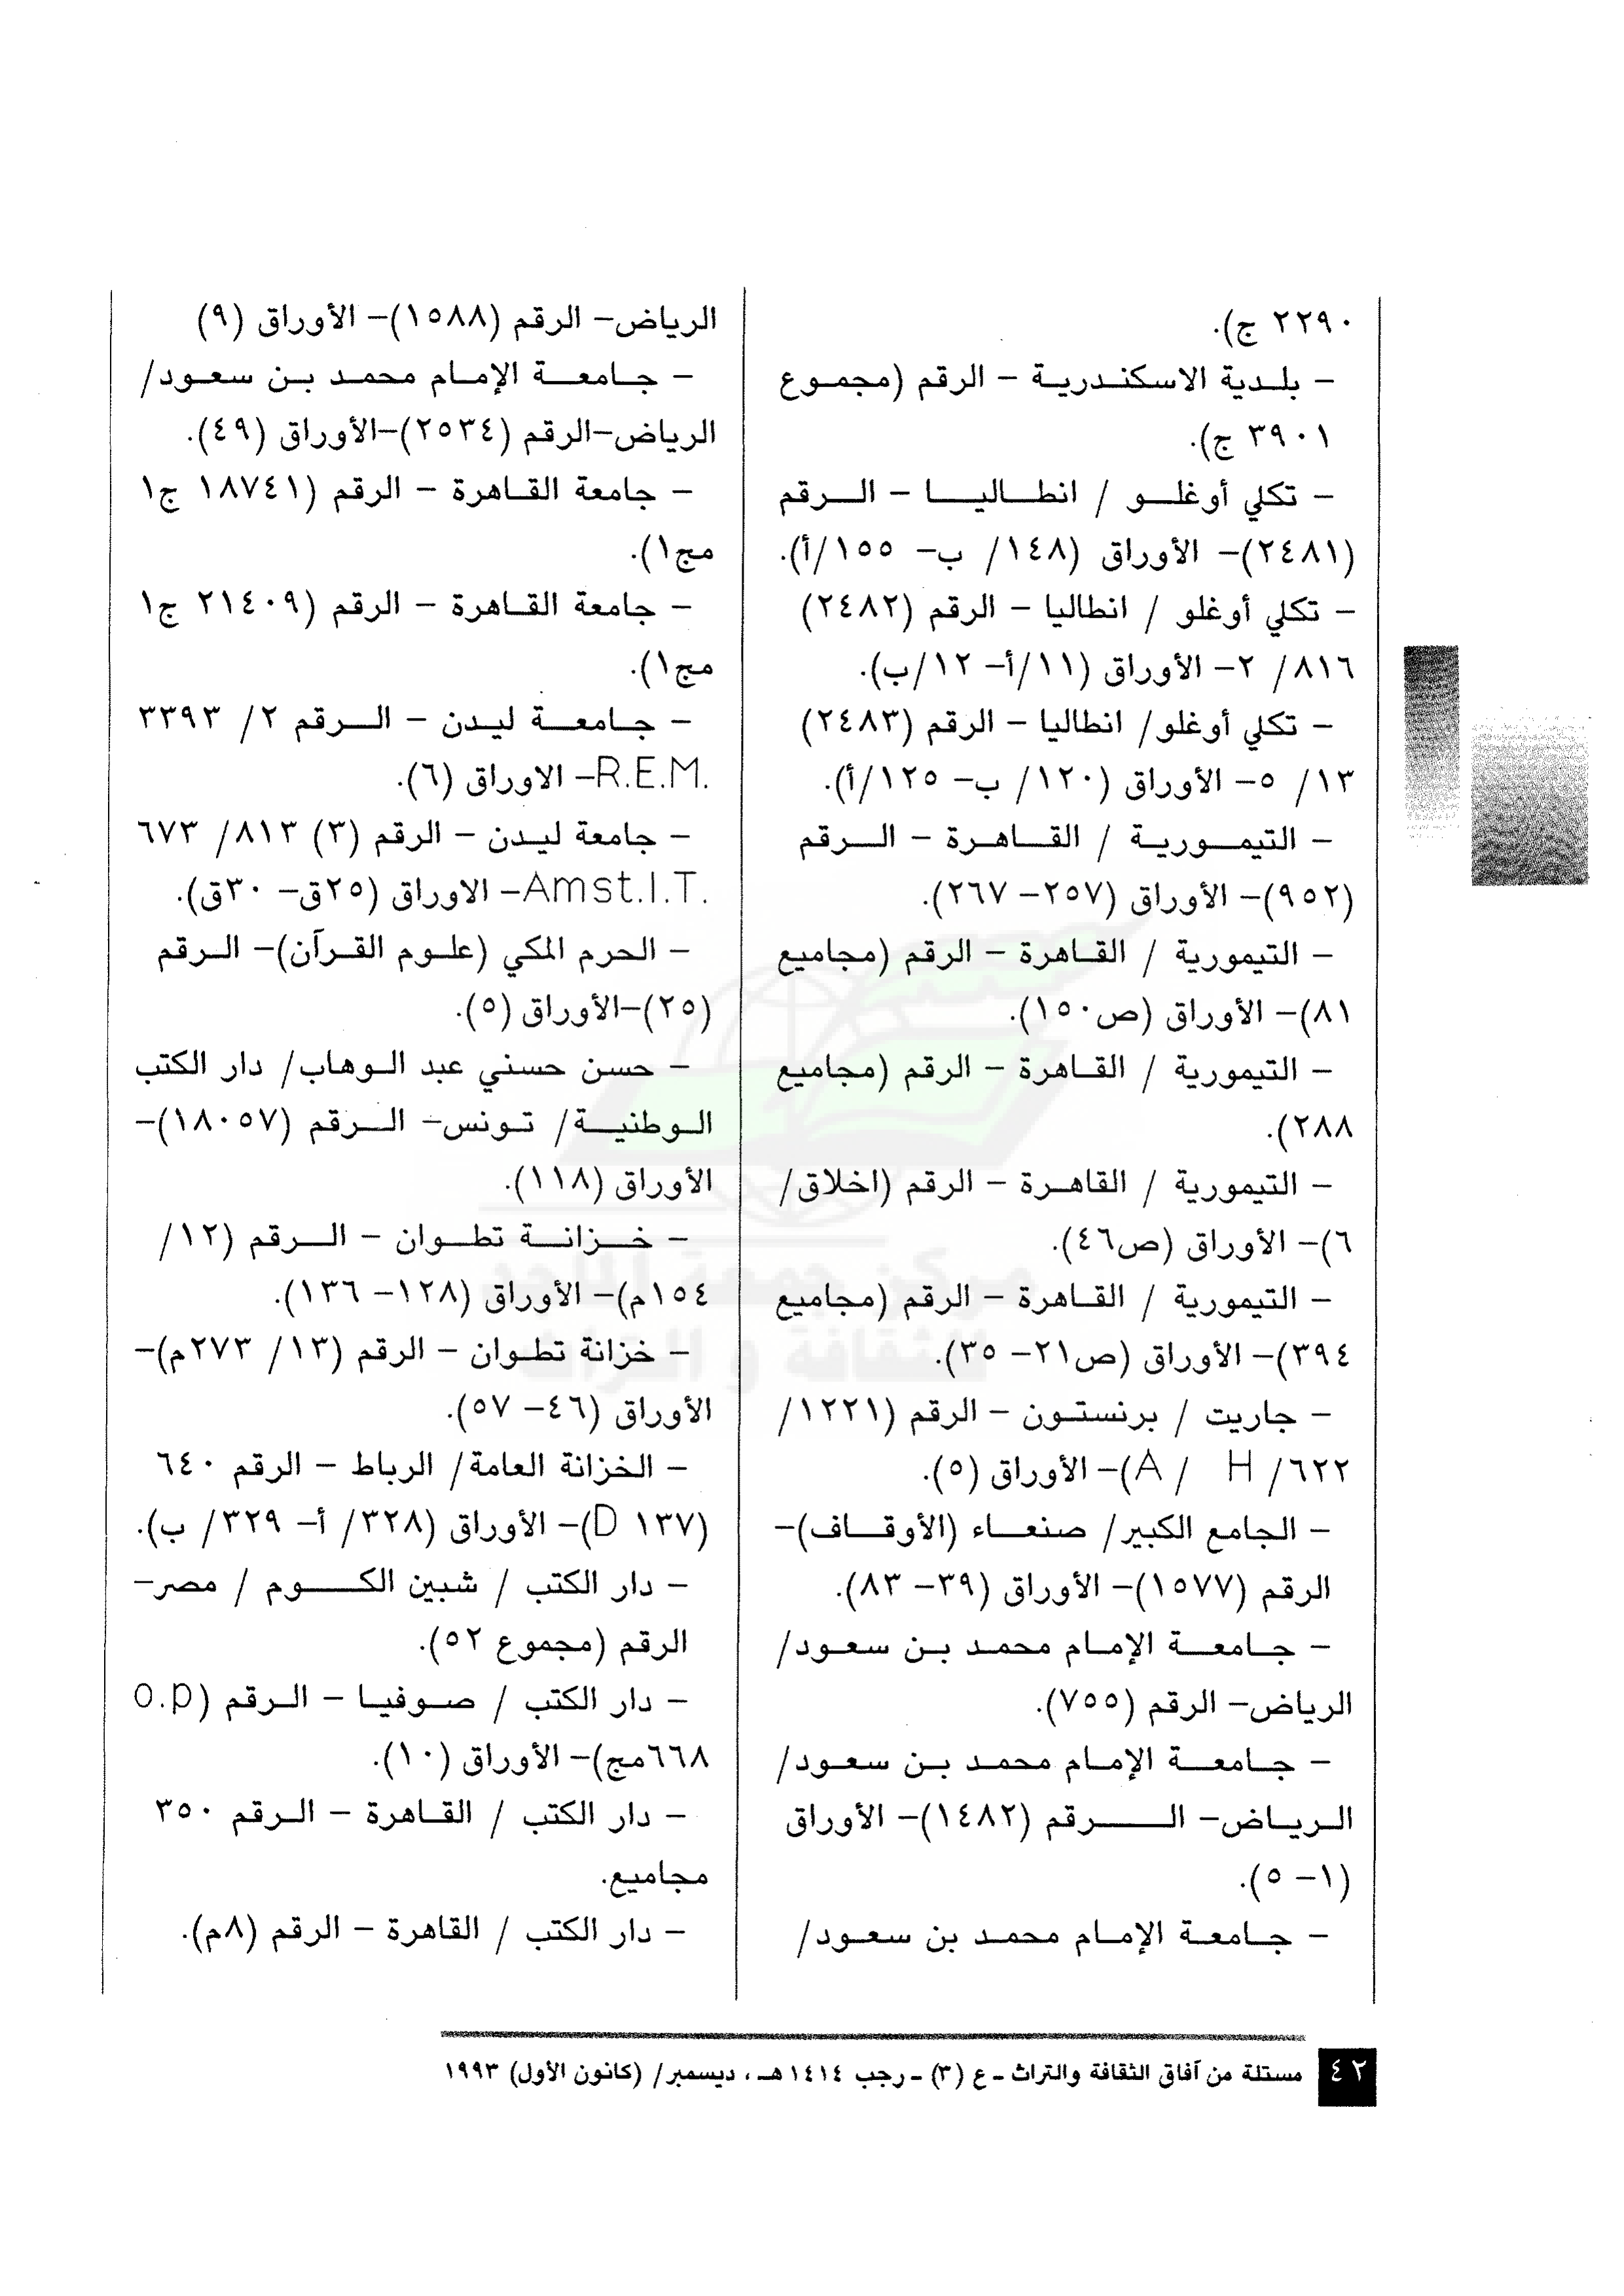 ٢٢٩٠ ج).
– بلدية الاسكندرية – الرقم (مجموع
٣٩٠١ ج).
– تكلي أوغلو / انطاليا – الرقم
(٢٤٨١)– الأوراق (١٤٨/ ب– ١٥٥/أ).
– تكلي أوغلو / انطاليا – الرقم (٢٤٨٢)
٨١٦/ ٢– الأوراق (١١/أ– ١٢/ب).
– تكلي أوغلو/ انطاليا – الرقم (٢٤٨٣)
١٣/ ٥– الأوراق (١٢٠/ ب– ١٢٥/أ).
– التيمورية / القاهرة – الرقم
(٩٥٢)– الأوراق (٢٥٧– ٢٦٧).
– التيمورية / القاهرة – الرقم (مجاميع
٨١)– الأوراق (ص١٥٠).
– التيمورية / القاهرة – الرقم (مجاميع
٢٨٨).
– التيمورية / القاهرة – الرقم (اخلاق/
٦)– الأوراق (ص٤٦).
– التيمورية / القاهرة – الرقم (مجاميع
٣٩٤)– الأوراق (ص٢١– ٣٥).
– جاريت / برنستون – الرقم (١٢٢١/
٦٢٢/ A / H)– الأوراق (٥).
– الجامع الكبير/ صنعاء (الأوقاف)–
الرقم (١٥٧٧)– الأوراق (٣٩– ٨٣).
– جامعة الإمام محمد بن سعود/
الرياض– الرقم (٧٥٥).
– جامعة الإمام محمد بن سعود/
الرياض– الرقم (١٤٨٢)– الأوراق
(١– ٥).
– جامعة الإمام محمد بن سعود/
الرياض– الرقم (١٥٨٨)– الأوراق (٩)
– جامعة الإمام محمد بن سعود/
الرياض–الرقم (٢٥٣٤)–الأوراق (٤٩).
– جامعة القاهرة – الرقم (١٨٧٤١ ج١
مج١).
– جامعة القاهرة – الرقم (٢١٤٠٩ ج١
مج١).
– جامعة ليدن – الرقم ٢/ ٣٣٩٣
R.E.M.– الاوراق (٦).
– جامعة ليدن – الرقم (٣) ٨١٣/ ٦٧٣
Amst.I.T.– الاوراق (٢٥ق– ٣٠ق).
– الحرم المكي (علوم القرآن)– الرقم
(٢٥)–الأوراق (٥).
– حسن حسني عبد الوهاب/ دار الكتب
الوطنية/ تونس– الرقم (١٨٠٥٧)–
الأوراق (١١٨).
– خزانة تطوان – الرقم (١٢/
١٥٤م)– الأوراق (١٢٨– ١٣٦).
– خزانة تطوان – الرقم (١٣/ ٢٧٣م)–
الأوراق (٤٦– ٥٧).
– الخزانة العامة/ الرباط – الرقم ٦٤٠
(١٣٧ D)– الأوراق (٣٢٨/ أ– ٣٢٩/ ب).
– دار الكتب / شبين الكوم / مصر–
الرقم (مجموع ٥٢).
– دار الكتب / صوفيا – الرقم (o.p
٦٦٨مج)– الأوراق (١٠).
– دار الكتب / القاهرة – الرقم ٣٥٠
مجاميع.
– دار الكتب / القاهرة – الرقم (٨م).
مركز جمعة الماجد
للثقافة و التراث
٤٢ مستلة من آفاق الثقافة والتراث ـ ع (٣) ـ رجب ١٤١٤ هـ ، ديسمبر/ (كانون الأول) ١٩٩٣